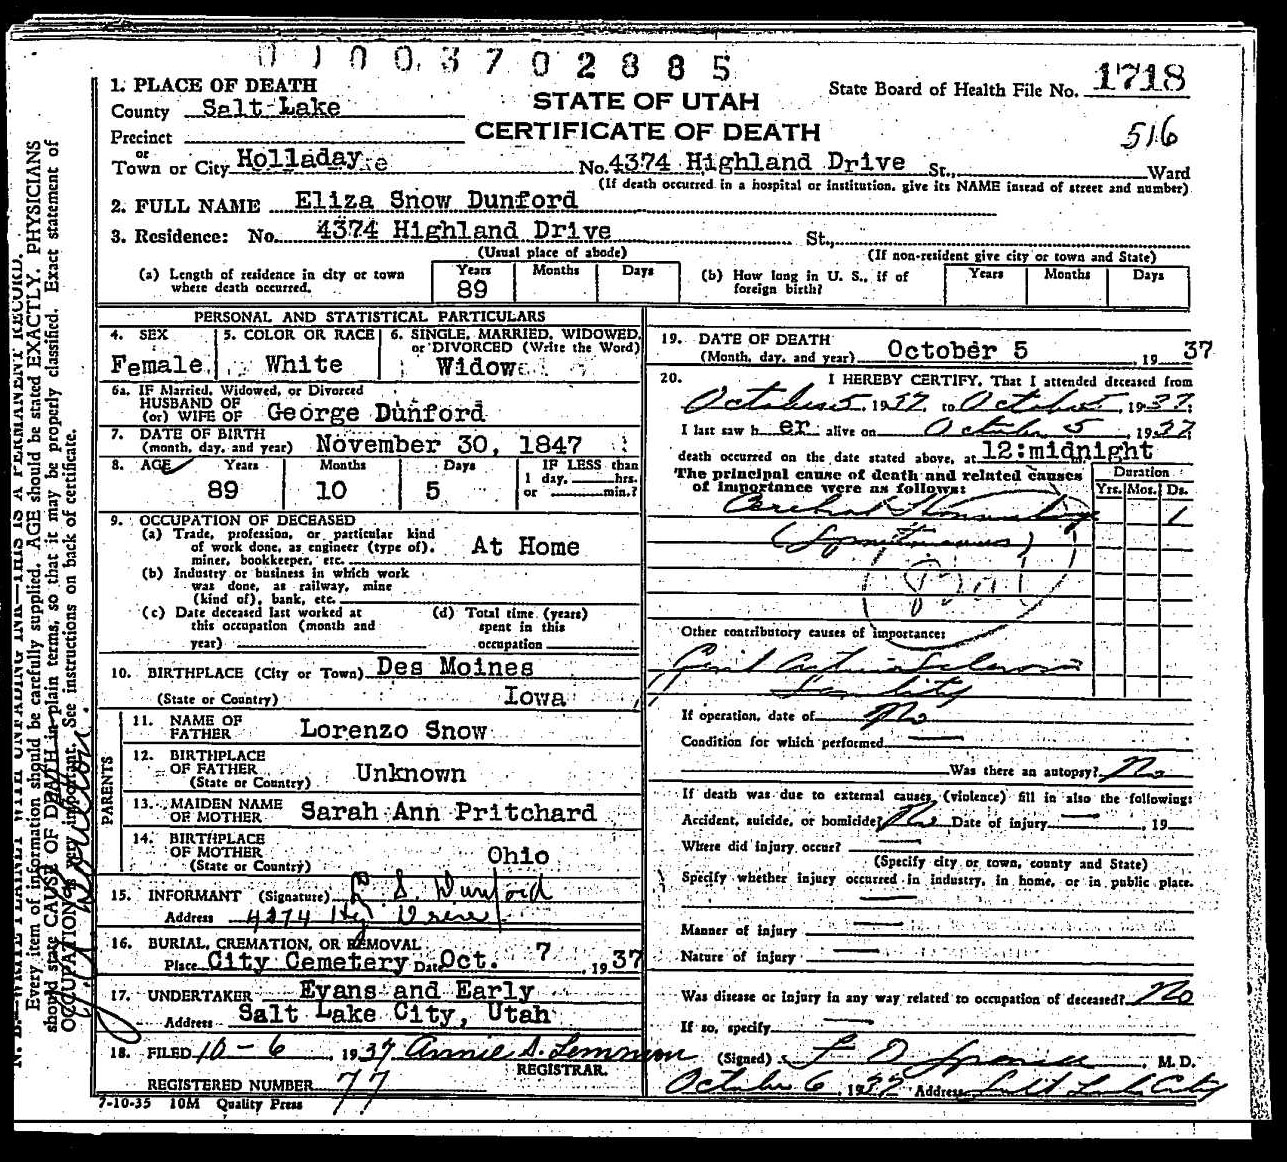 0 1 0 0 3 7 0 2 8 8 5
1. PLACE OF DEATH
County Salt Lake
STATE OF UTAH
State Board of Health File No. 1718
Precinct
CERTIFICATE OF DEATH
516
or
Town or City Holladay No. 4374 Highland Drive St., Ward
(If death occurred in a hospital or institution, give its NAME instead of street and number)
2. FULL NAME Eliza Snow Dunford
3. Residence: No. 4374 Highland Drive St.,
(Usual place of abode) (If non-resident give city or town and State)
(a) Length of residence in city or town where death occurred. Years 89 Months Days
(b) How long in U. S., if of foreign birth? Years Months Days
PERSONAL AND STATISTICAL PARTICULARS
4. SEX Female
5. COLOR OR RACE White
6. SINGLE, MARRIED, WIDOWED, or DIVORCED (Write the Word) Widow
6a. IF Married, Widowed, or Divorced
HUSBAND OF
(or) WIFE OF George Dunford
7. DATE OF BIRTH
(month, day, and year) November 30, 1847
8. AGE Years 89 Months 10 Days 5 IF LESS than 1 day, hrs. or min.?
9. OCCUPATION OF DECEASED
(a) Trade, profession, or particular kind
of work done, as engineer (type of),
miner, bookkeeper, etc. At Home
(b) Industry or business in which work
was done, as railway, mine
(kind of), bank, etc.
(c) Date deceased last worked at
this occupation (month and
year)
(d) Total time (years)
spent in this
occupation
10. BIRTHPLACE (City or Town) Des Moines
(State or Country) Iowa
PARENTS
11. NAME OF
FATHER Lorenzo Snow
12. BIRTHPLACE
OF FATHER
(State or Country) Unknown
13. MAIDEN NAME
OF MOTHER Sarah Ann Pritchard
14. BIRTHPLACE
OF MOTHER
(State or Country) Ohio
15. INFORMANT (Signature) S. Dunford
Address 4374
16. BURIAL, CREMATION, OR REMOVAL
Place City Cemetery Date Oct. 7, 1937
17. UNDERTAKER Evans and Early
Address Salt Lake City, Utah
18. FILED 10-6, 1937 Annie S. Lemmon
REGISTRAR.
REGISTERED NUMBER 77
7-10-35 10M Quality Press
19. DATE OF DEATH
(Month, day, and year) October 5, 1937
20. I HEREBY CERTIFY, That I attended deceased from
October 5, 1937, to October 5, 1937;
I last saw her alive on October 5, 1937;
death occurred on the date stated above, at 12:midnight
The principal cause of death and related causes
of importance were as follows:
Duration
Yrs. Mos. Ds.
Cerebral Hemorrhage 1
(Spontaneous)
Other contributory causes of importance:
Arterio Sclerosis
Senility
If operation, date of No
Condition for which performed
Was there an autopsy? No
If death was due to external causes (violence) fill in also the following:
Accident, suicide, or homicide? No Date of injury , 19
Where did injury occur?
(Specify city or town, county and State)
Specify whether injury occurred in industry, in home, or in public place.
Manner of injury
Nature of injury
Was disease or injury in any way related to occupation of deceased? No
If so, specify
(Signed) M. D.
October 6, 1937 Address Salt Lake City
N. B.—WRITE PLAINLY WITH UNFADING INK—THIS IS A PERMANENT RECORD.
Every item of information should be carefully supplied. AGE should be stated EXACTLY. PHYSICIANS
should state CAUSE OF DEATH in plain terms, so that it may be properly classified. Exact statement of
OCCUPATION is very important. See instructions on back of certificate.